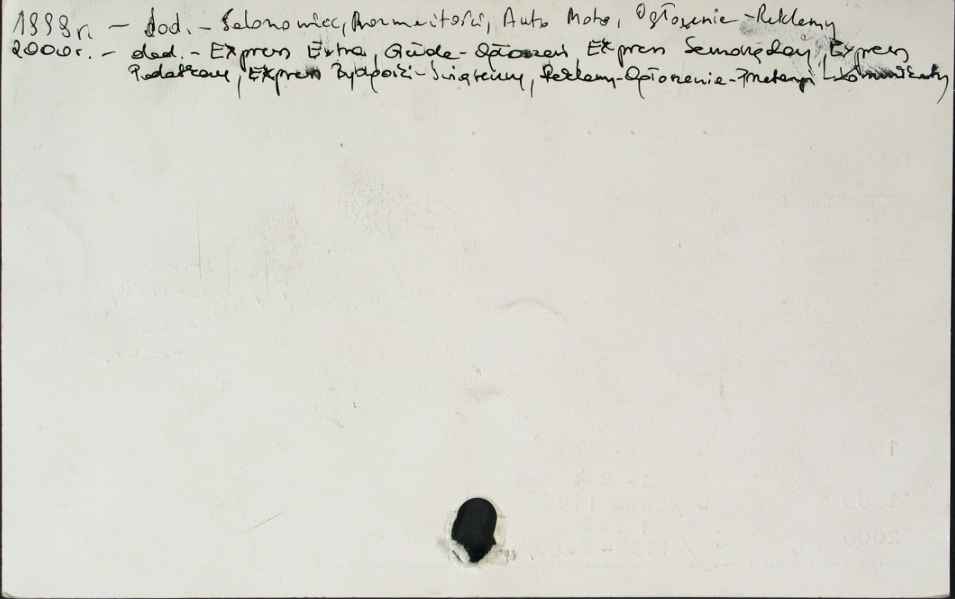 1999r. – dod. – Salonowiec, Rozmaitości, Auto Moto, Ogłoszenia-Reklamy
2000r. – dod. – Express Extra, Giełda-Ogłoszeń Express Samorządowy, Express
Podatkowy, Express Bydgoski-Świąteczny, Reklamy-Ogłoszenia-Przetargi-Komunikaty